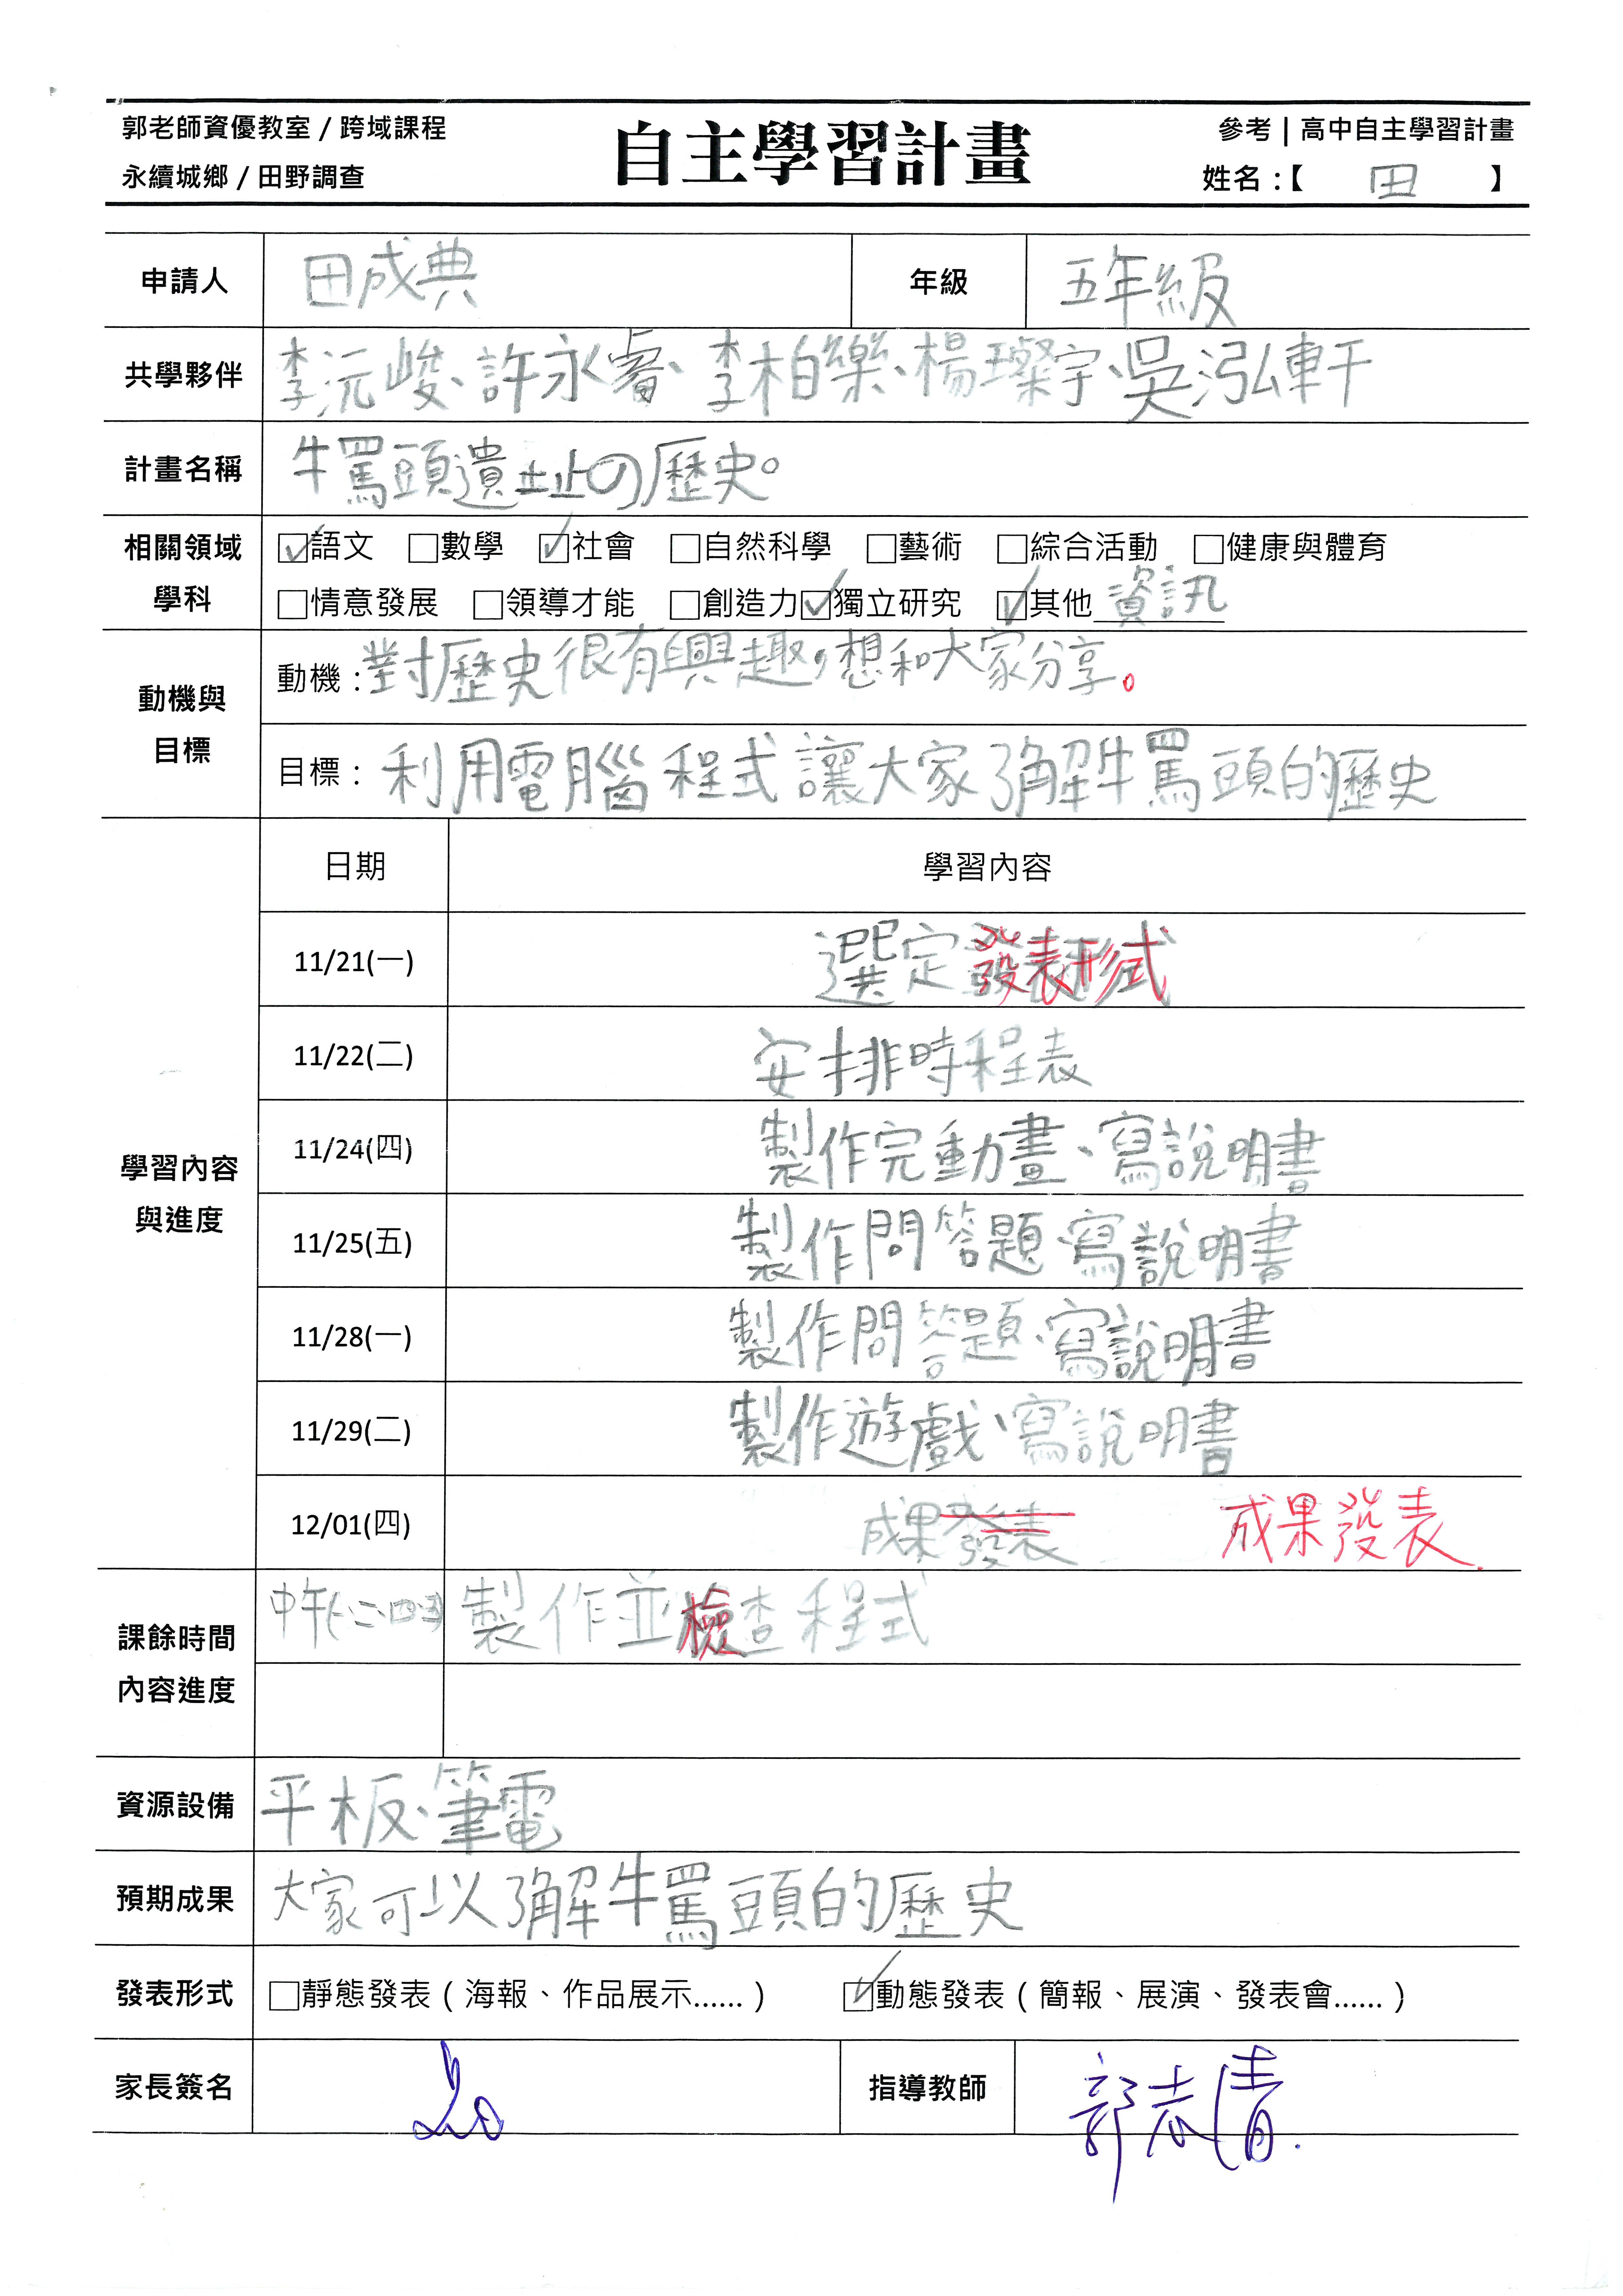 郭老師資優教室 / 跨域課程
永續城鄉 / 田野調查
自主學習計畫
參考 | 高中自主學習計畫
姓名：【 田 】
申請人 田成典 年級 五年級
共學夥伴 李沅峻、許永睿、李柏樂、楊璨宇、吳泓軒
計畫名稱 牛罵頭遺址の歷史。
相關領域
學科
☑語文 □數學 ☑社會 □自然科學 □藝術 □綜合活動 □健康與體育
□情意發展 □領導才能 □創造力 ☑獨立研究 ☑其他 資訊
動機與
目標
動機：對歷史很有興趣，想和大家分享。
目標：利用電腦程式讓大家了解牛罵頭的歷史
學習內容
與進度
日期 學習內容
11/21(一) 選定發表形式
11/22(二) 安排時程表
11/24(四) 製作完動畫、寫說明書
11/25(五) 製作問答題、寫說明書
11/28(一) 製作問答題、寫說明書
11/29(二) 製作遊戲、寫說明書
12/01(四) 成果發表 成果發表
課餘時間
內容進度
中午(一、二、四、五) 製作並檢查程式
資源設備 平板、筆電
預期成果 大家可以了解牛罵頭的歷史
發表形式 □靜態發表（海報、作品展示......） ☑動態發表（簡報、展演、發表會......）
家長簽名 指導教師 郭志清